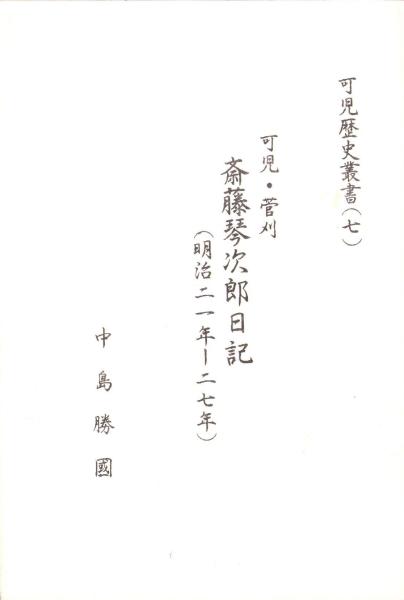 可児歴史叢書(七)
可児・菅刈
斎藤琴次郎日記
(明治二一年ー二七年)
中島勝國